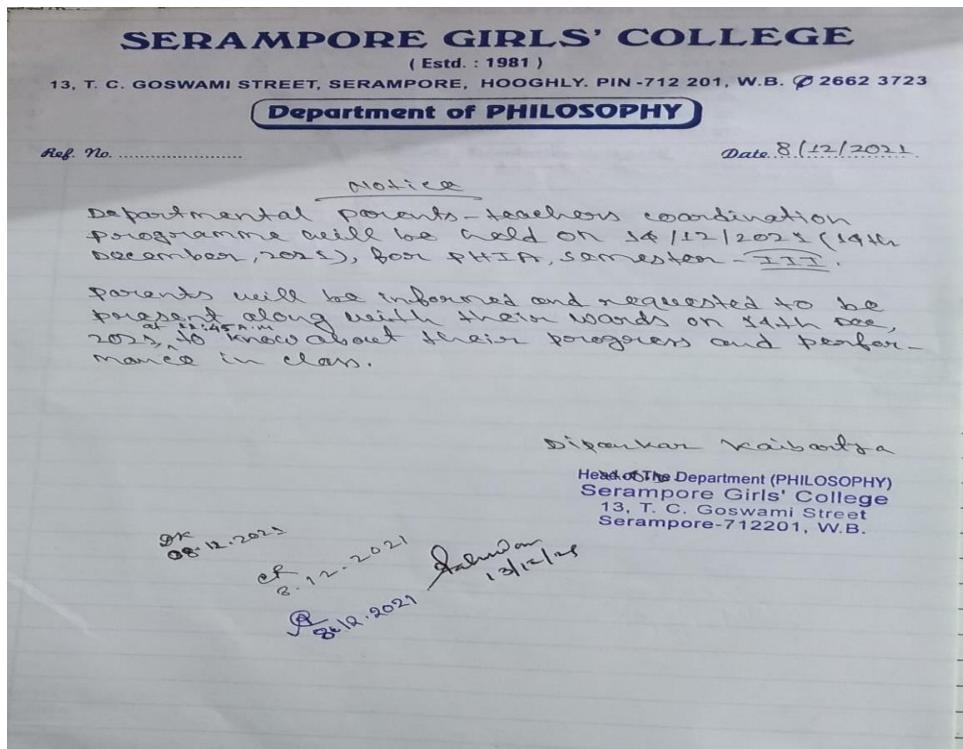 SERAMPORE GIRLS' COLLEGE
( Estd. : 1981 )
13, T. C. GOSWAMI STREET, SERAMPORE, HOOGHLY. PIN -712 201, W.B. ✆ 2662 3723
Department of PHILOSOPHY
Ref. No. ........................ Date 8/12/2021
Notice
Departmental parents-teachers coordination
programme will be held on 14/12/2021 (14th
December, 2021), for PHIA, Semester - III.
Parents will be informed and requested to be
present along with their wards on 14th Dec,
at 11:45 A.M
2021, ^ to know about their progress and perfor-
mance in class.
Dipankar Kaibartya
Head of The Department (PHILOSOPHY)
Serampore Girls' College
13, T. C. Goswami Street
Serampore-712201, W.B.
DK
08.12.2021
8.12.2021
13/12/21
08.12.2021